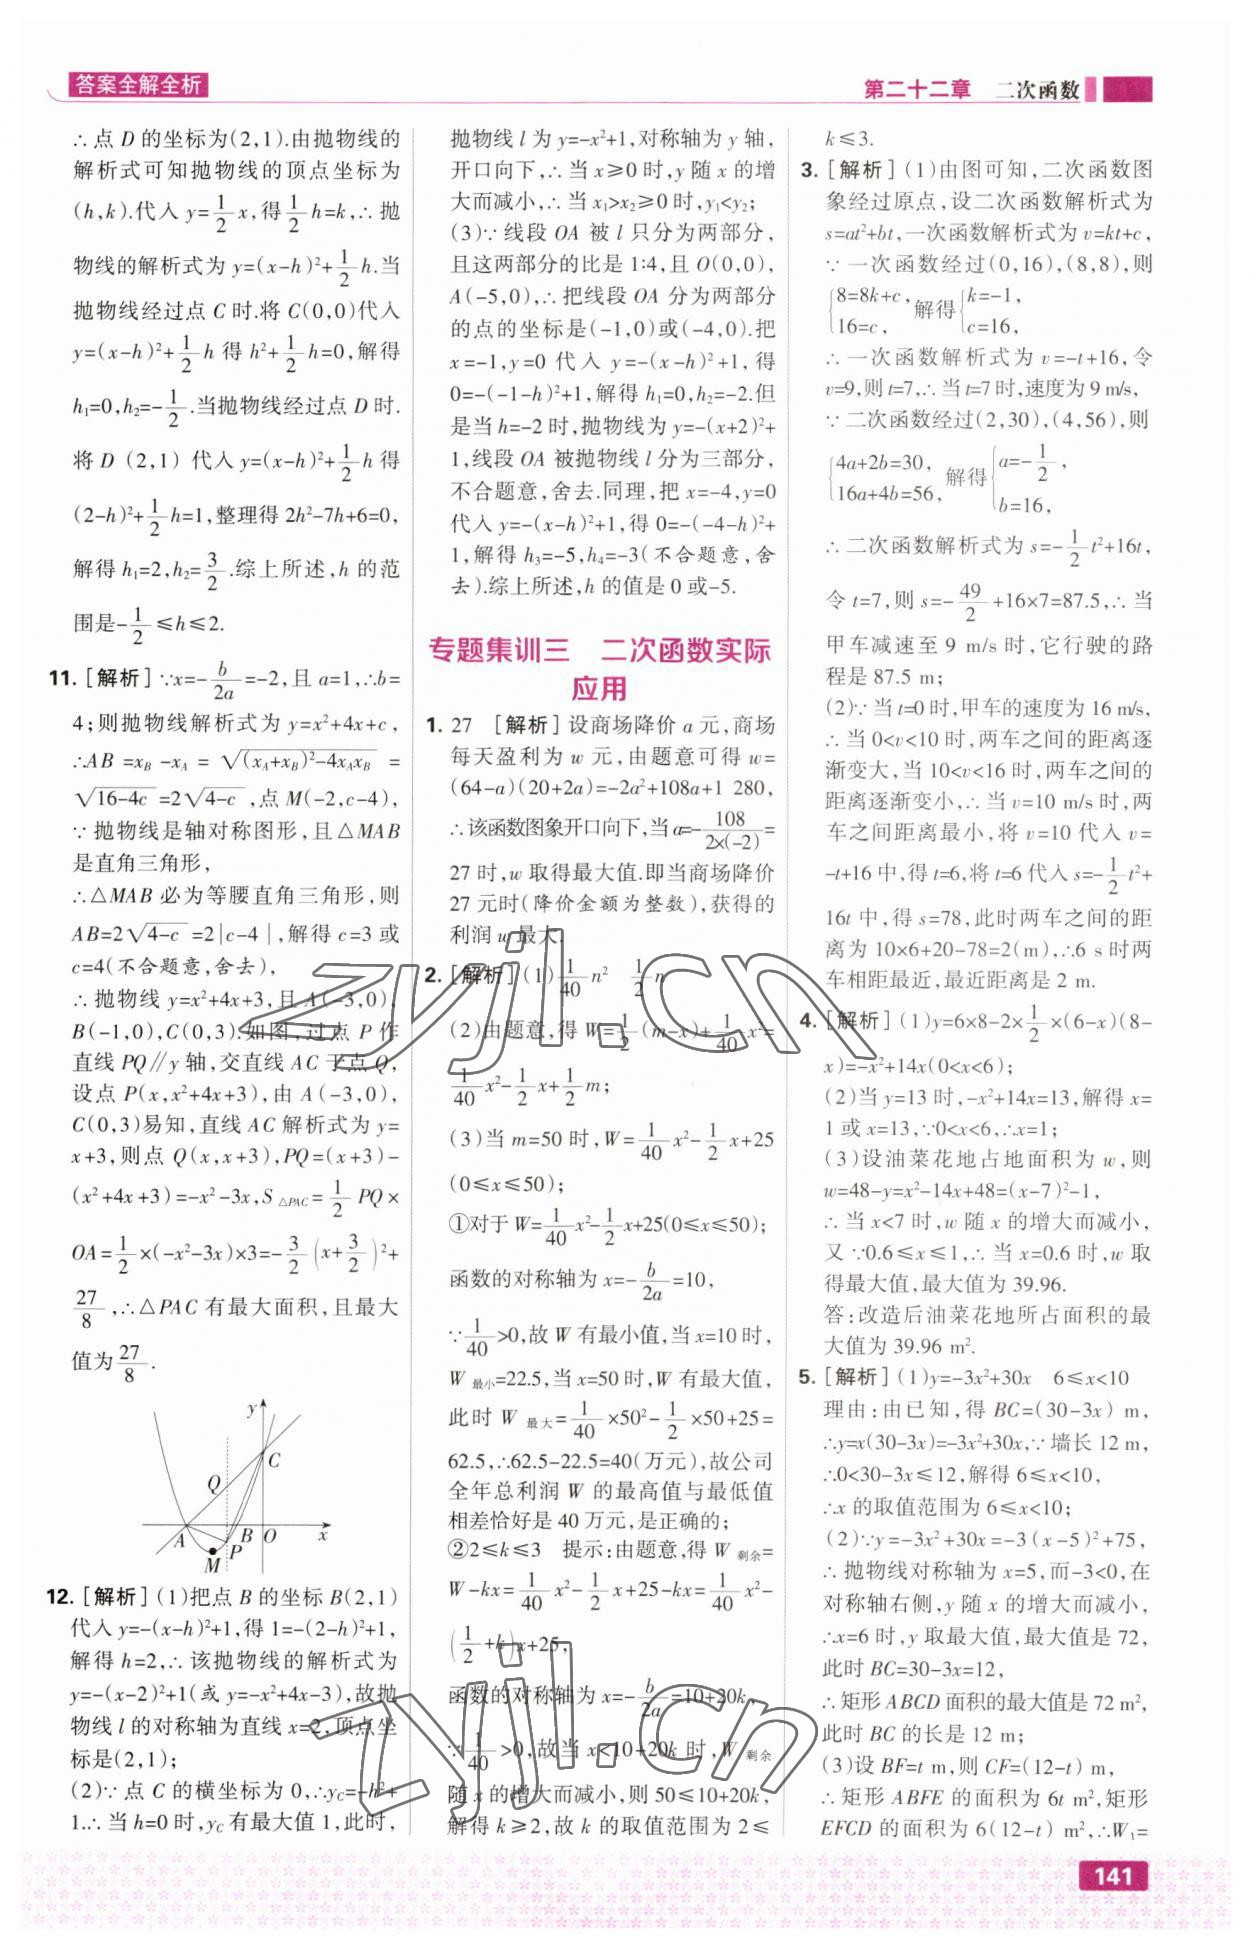 答案全解全析
第二十二章 二次函数
∴点 D 的坐标为(2,1).由抛物线的
解析式可知抛物线的顶点坐标为
(h,k).代入 y=1/2x,得1/2h=k,∴抛
物线的解析式为 y=(x-h)²+1/2h.当
抛物线经过点 C 时.将 C(0,0)代入
y=(x-h)²+1/2h 得 h²+1/2h=0,解得
h₁=0,h₂=-1/2.当抛物线经过点 D 时.
将 D(2,1)代入 y=(x-h)²+1/2h 得
(2-h)²+1/2h=1,整理得 2h²-7h+6=0,
解得 h₁=2,h₂=3/2.综上所述,h 的范
围是-1/2≤h≤2.
11. [解析]∵x=-b/2a=-2,且 a=1,∴b=
4;则抛物线解析式为 y=x²+4x+c,
∴AB=x_B-x_A=√((x_A+x_B)²-4x_Ax_B)=
√(16-4c)=2√(4-c),点 M(-2,c-4),
∵抛物线是轴对称图形,且△MAB
是直角三角形,
∴△MAB 必为等腰直角三角形,则
AB=2√(4-c)=2|c-4|,解得 c=3 或
c=4(不合题意,舍去),
∴抛物线 y=x²+4x+3,且 A(-3,0),
B(-1,0),C(0,3).如图,过点 P 作
直线 PQ∥y 轴,交直线 AC 于点 Q,
设点 P(x,x²+4x+3),由 A(-3,0),
C(0,3)易知,直线 AC 解析式为 y=
x+3,则点 Q(x,x+3),PQ=(x+3)-
(x²+4x+3)=-x²-3x,S△PAC=1/2PQ×
OA=1/2×(-x²-3x)×3=-3/2(x+3/2)²+
27/8,∴△PAC 有最大面积,且最大
值为27/8.
y
C
Q
A
B
O
x
M
P
12. [解析](1)把点 B 的坐标 B(2,1)
代入 y=-(x-h)²+1,得 1=-(2-h)²+1,
解得 h=2,∴该抛物线的解析式为
y=-(x-2)²+1(或 y=-x²+4x-3),故抛
物线 l 的对称轴为直线 x=2,顶点坐
标是(2,1);
(2)∵点 C 的横坐标为 0,∴y_C=-h²+
1.∴当 h=0 时,y_C 有最大值 1,此时,
抛物线 l 为 y=-x²+1,对称轴为 y 轴,
开口向下,∴当 x≥0 时,y 随 x 的增
大而减小,∴当 x₁>x₂≥0 时,y₁<y₂;
(3)∵线段 OA 被 l 只分为两部分,
且这两部分的比是 1:4,且 O(0,0),
A(-5,0),∴把线段 OA 分为两部分
的点的坐标是(-1,0)或(-4,0).把
x=-1,y=0 代入 y=-(x-h)²+1,得
0=-(-1-h)²+1,解得 h₁=0,h₂=-2.但
是当 h=-2 时,抛物线为 y=-(x+2)²+
1,线段 OA 被抛物线 l 分为三部分,
不合题意,舍去.同理,把 x=-4,y=0
代入 y=-(x-h)²+1,得 0=-(-4-h)²+
1,解得 h₃=-5,h₄=-3(不合题意,舍
去).综上所述,h 的值是 0 或-5.
专题集训三 二次函数实际
应用
1. 27 [解析]设商场降价 a 元,商场
每天盈利为 w 元,由题意可得 w=
(64-a)(20+2a)=-2a²+108a+1 280,
∴该函数图象开口向下,当 a=-108/(2×(-2))=
27 时,w 取得最大值.即当商场降价
27 元时(降价金额为整数),获得的
利润 w 最大.
2. [解析](1)1/40n² 1/2n
(2)由题意,得 W=1/2(m-x)+1/40x²=
1/40x²-1/2x+1/2m;
(3)当 m=50 时,W=1/40x²-1/2x+25
(0≤x≤50);
①对于 W=1/40x²-1/2x+25(0≤x≤50);
函数的对称轴为 x=-b/2a=10,
∵1/40>0,故 W 有最小值,当 x=10 时,
W最小=22.5,当 x=50 时,W 有最大值,
此时 W最大=1/40×50²-1/2×50+25=
62.5,∴62.5-22.5=40(万元),故公司
全年总利润 W 的最高值与最低值
相差恰好是 40 万元,是正确的;
②2≤k≤3 提示:由题意,得 W剩余=
W-kx=1/40x²-1/2x+25-kx=1/40x²-
(1/2+k)x+25,
函数的对称轴为 x=-b/2a=10+20k,
∵1/40>0,故当 x<10+20k 时,W剩余
随 x 的增大而减小,则 50≤10+20k,
解得 k≥2,故 k 的取值范围为 2≤
k≤3.
3. [解析](1)由图可知,二次函数图
象经过原点,设二次函数解析式为
s=at²+bt,一次函数解析式为 v=kt+c,
∵一次函数经过(0,16),(8,8),则
{8=8k+c, 16=c, 解得{k=-1, c=16,
∴一次函数解析式为 v=-t+16,令
v=9,则 t=7,∴当 t=7 时,速度为 9 m/s,
∵二次函数经过(2,30),(4,56),则
{4a+2b=30, 16a+4b=56, 解得{a=-1/2, b=16,
∴二次函数解析式为 s=-1/2t²+16t,
令 t=7,则 s=-49/2+16×7=87.5,∴当
甲车减速至 9 m/s 时,它行驶的路
程是 87.5 m;
(2)∵当 t=0 时,甲车的速度为 16 m/s,
∴当 0<v<10 时,两车之间的距离逐
渐变大,当 10<v<16 时,两车之间的
距离逐渐变小,∴当 v=10 m/s 时,两
车之间距离最小,将 v=10 代入 v=
-t+16 中,得 t=6,将 t=6 代入 s=-1/2t²+
16t 中,得 s=78,此时两车之间的距
离为 10×6+20-78=2(m),∴6 s 时两
车相距最近,最近距离是 2 m.
4. [解析](1)y=6×8-2×1/2×(6-x)(8-
x)=-x²+14x(0<x<6);
(2)当 y=13 时,-x²+14x=13,解得 x=
1 或 x=13,∵0<x<6,∴x=1;
(3)设油菜花地占地面积为 w,则
w=48-y=x²-14x+48=(x-7)²-1,
∴当 x<7 时,w 随 x 的增大而减小,
又∵0.6≤x≤1,∴当 x=0.6 时,w 取
得最大值,最大值为 39.96.
答:改造后油菜花地所占面积的最
大值为 39.96 m².
5. [解析](1)y=-3x²+30x 6≤x<10
理由:由已知,得 BC=(30-3x) m,
∴y=x(30-3x)=-3x²+30x,∵墙长 12 m,
∴0<30-3x≤12,解得 6≤x<10,
∴x 的取值范围为 6≤x<10;
(2)∵y=-3x²+30x=-3(x-5)²+75,
∴抛物线对称轴为 x=5,而-3<0,在
对称轴右侧,y 随 x 的增大而减小,
∴x=6 时,y 取最大值,最大值是 72,
此时 BC=30-3x=12,
∴矩形 ABCD 面积的最大值是 72 m²,
此时 BC 的长是 12 m;
(3)设 BF=t m,则 CF=(12-t) m,
∴矩形 ABFE 的面积为 6t m²,矩形
EFCD 的面积为 6(12-t) m²,∴W₁=
141
zyjl.cn
zyjl.cn